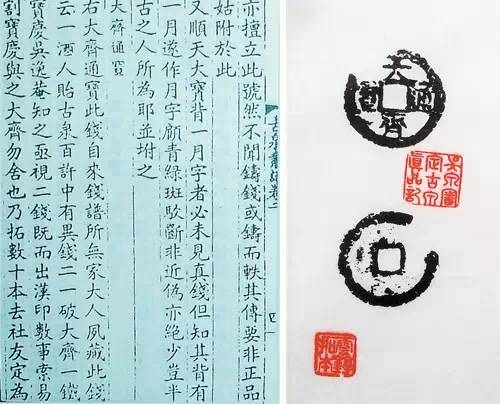 亦擅立此號然不聞鑄錢或鑄而軼其傳要非正品
姑附於此
又順天大寶背一月字者必未見真錢但知其背有
一月遂作月字顧青綠斑駁斷非近偽亦絕少豈半
古之人所為耶並坿之
大齊通寶
右大齊通寶此錢自來錢譜所無家大人夙藏此錢
云一酒人貽古泉百許中有異錢二一破大齊一鐵
寶慶吳逸菴知之亟視二錢既而出漢印數事索易
割寶慶與之大齊勿舍也乃拓數十本去社友定為
古泉叢話卷二
四
大齊通寶